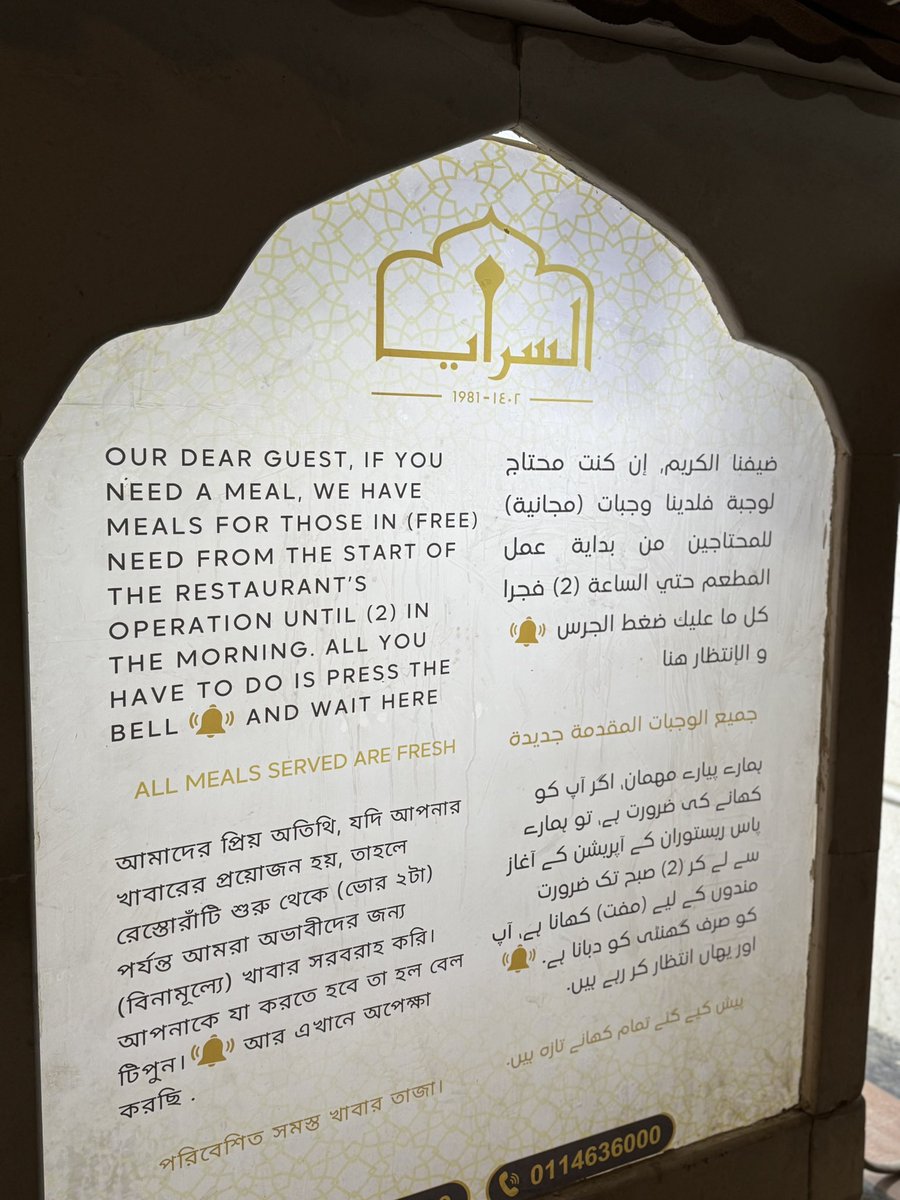 السراي
1981-١٤٠٢
OUR DEAR GUEST, IF YOU
NEED A MEAL, WE HAVE
MEALS FOR THOSE IN (FREE)
NEED FROM THE START OF
THE RESTAURANT'S
OPERATION UNTIL (2) IN
THE MORNING. ALL YOU
HAVE TO DO IS PRESS THE
BELL AND WAIT HERE
ALL MEALS SERVED ARE FRESH
ضيفنا الكريم, إن كنت محتاج
لوجبة فلدينا وجبات (مجانية)
للمحتاجين من بداية عمل
المطعم حتي الساعة (2) فجرا
كل ما عليك ضغط الجرس
و الإنتظار هنا
جميع الوجبات المقدمة جديدة
আমাদের প্রিয় অতিথি, যদি আপনার
খাবারের প্রয়োজন হয়, তাহলে
রেস্তোরাঁটি শুরু থেকে (ভোর ২টা)
পর্যন্ত আমরা অভাবীদের জন্য
(বিনামূল্যে) খাবার সরবরাহ করি।
আপনাকে যা করতে হবে তা হল বেল
টিপুন। আর এখানে অপেক্ষা
করছি .
পরিবেশিত সমস্ত খাবার তাজা।
ہمارے پیارے مہمان، اگر آپ کو
کھانے کی ضرورت ہے، تو ہمارے
پاس ریستوران کے آپریشن کے آغاز
سے لے کر (2) صبح تک ضرورت
مندوں کے لیے (مفت) کھانا ہے، آپ
کو صرف گھنٹی کو دبانا ہے.
اور یہاں انتظار کر رہے ہیں.
پیش کیے گئے تمام کھانے تازہ ہیں.
0114636000